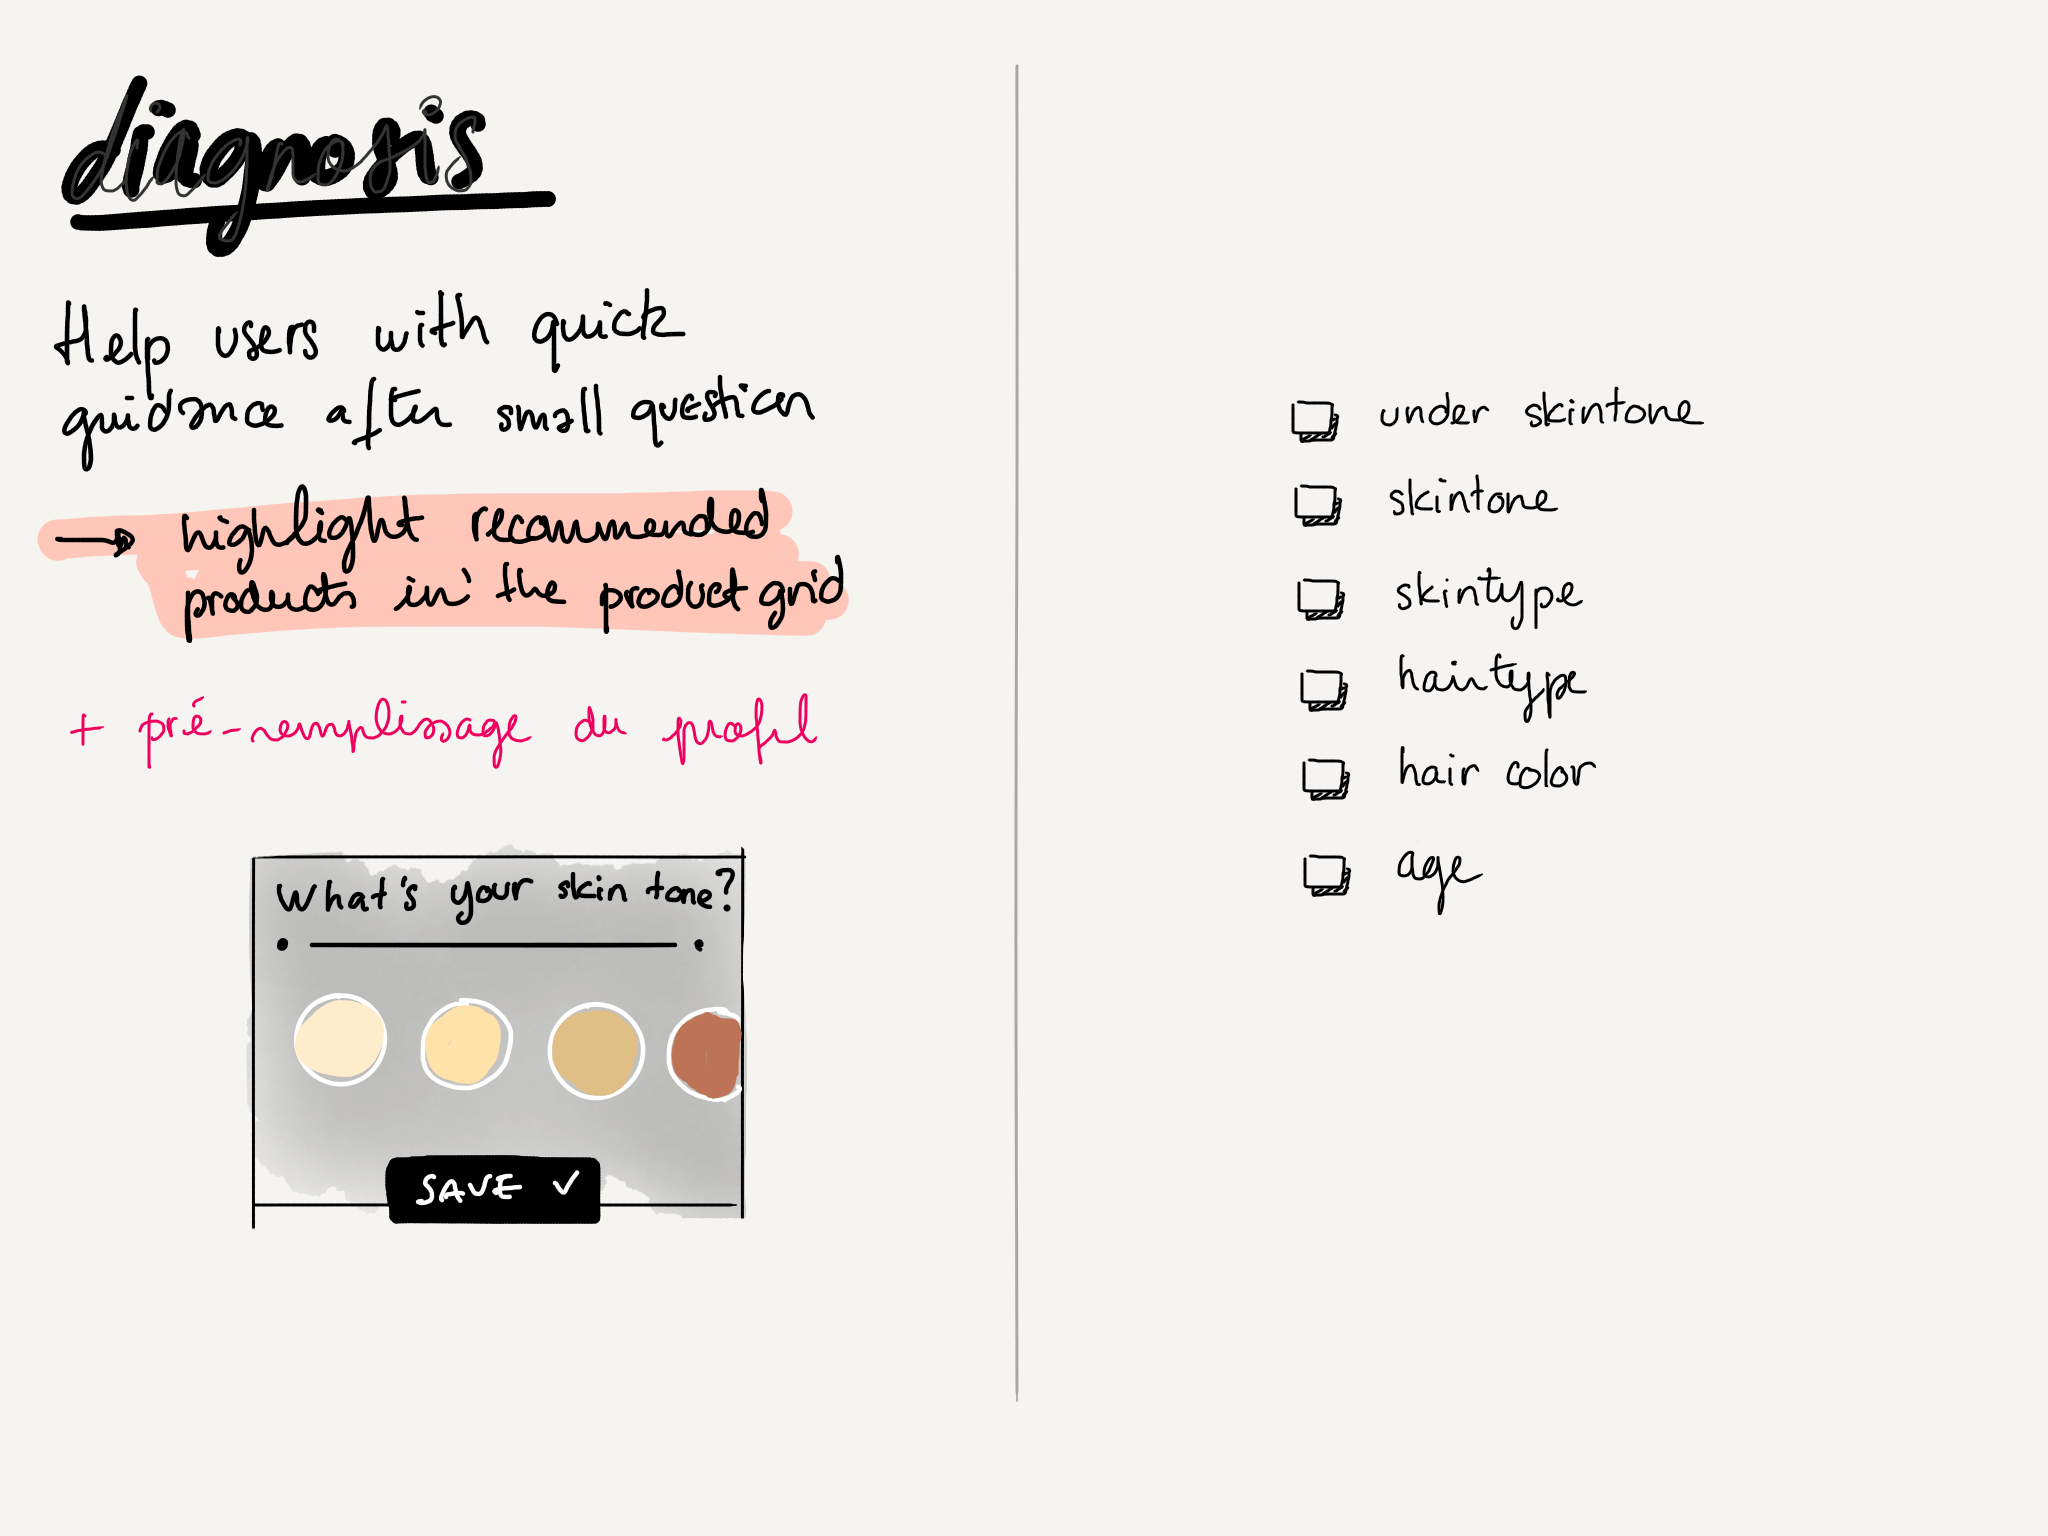 diagnosis
Help users with quick
guidance after small question
→ highlight recommended
products in the product grid
+ pré-remplissage du profil
What's your skin tone?
SAVE ✓
under skintone
skintone
skintype
hairtype
hair color
age